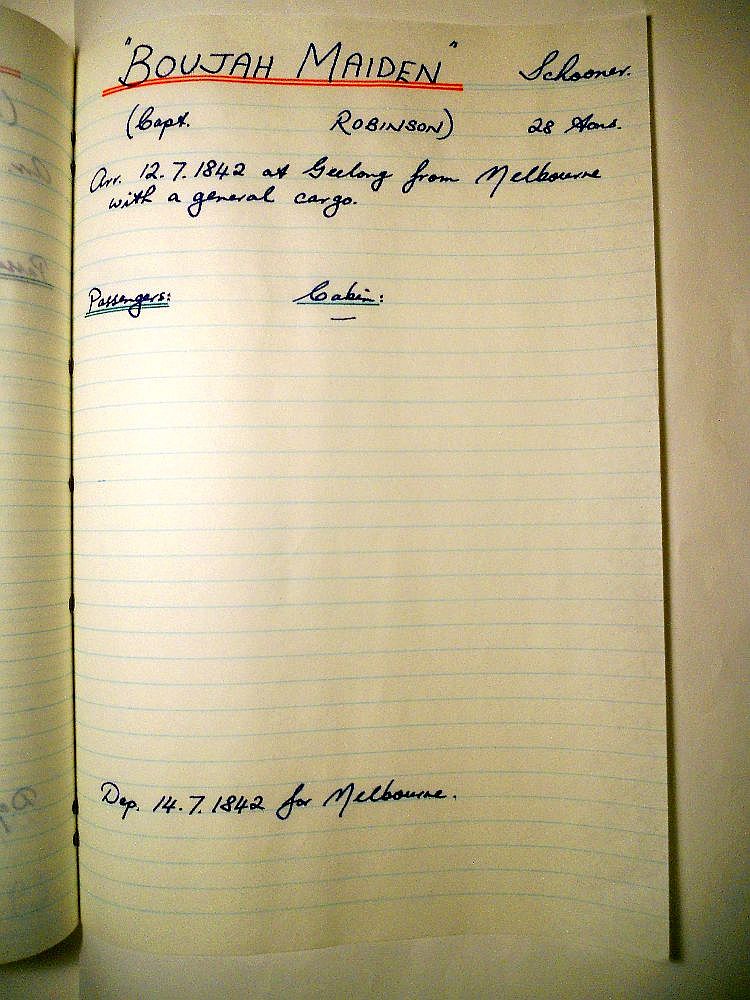 "BOUJAH MAIDEN" Schooner.
(Capt. ROBINSON) 28 tons.
Arr. 12.7.1842 at Geelong from Melbourne
with a general cargo.
Passengers: Cabin:
—
Dep. 14.7.1842 for Melbourne.